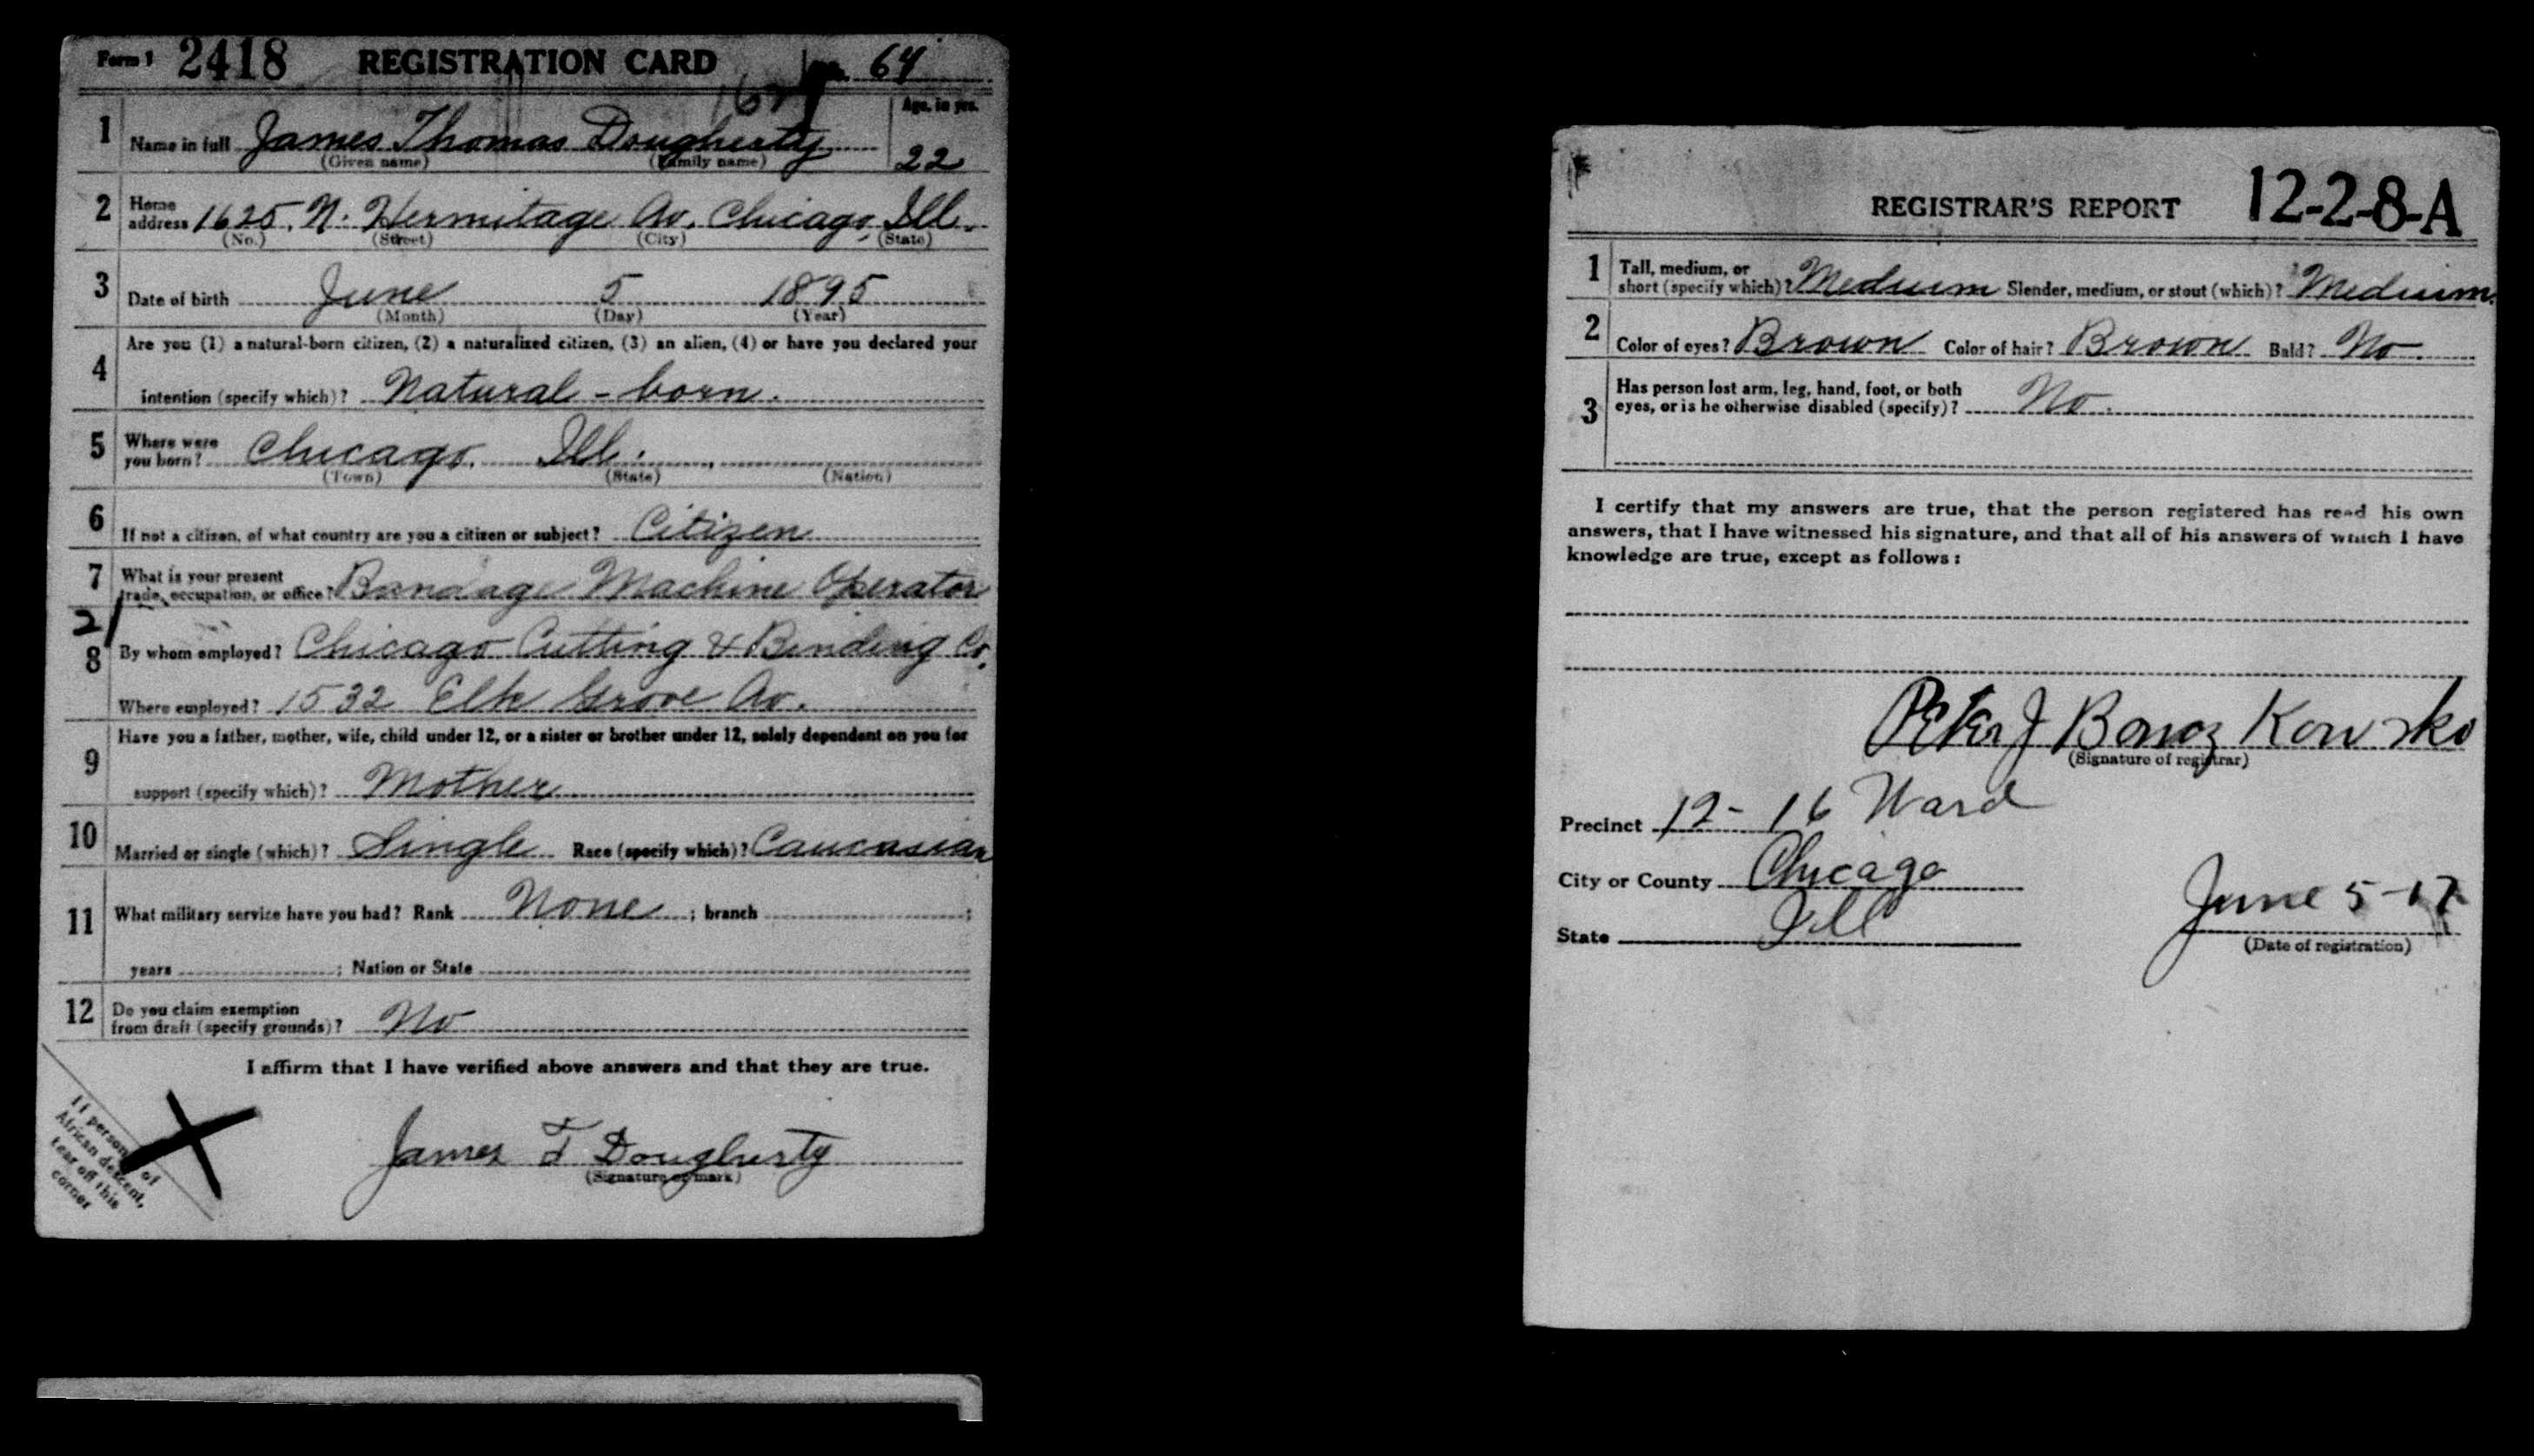 Form 1 2418 REGISTRATION CARD No. 64
1 Name in full James Thomas Dougherty Age, in yrs. 22
(Given name) (Family name)
2 Home address 1625 N. Hermitage Av. Chicago, Ill.
(No.) (Street) (City) (State)
3 Date of birth June 5 1895
(Month) (Day) (Year)
4 Are you (1) a natural-born citizen, (2) a naturalized citizen, (3) an alien, (4) or have you declared your
intention (specify which)? Natural-born.
5 Where were you born? Chicago. Ill.
(Town) (State) (Nation)
6 If not a citizen, of what country are you a citizen or subject? Citizen
7 What is your present trade, occupation, or office? Bandage Machine Operator
21
8 By whom employed? Chicago Cutting & Binding Co.
Where employed? 1532 Elk Grove Av.
9 Have you a father, mother, wife, child under 12, or a sister or brother under 12, solely dependent on you for
support (specify which)? Mother
10 Married or single (which)? Single Race (specify which)? Caucasian
11 What military service have you had? Rank None ; branch ;
years ; Nation or State
12 Do you claim exemption from draft (specify grounds)? No
I affirm that I have verified above answers and that they are true.
If person is of
African descent,
tear off this
corner
James T Dougherty
(Signature or mark)
REGISTRAR'S REPORT 12-2-8-A
1 Tall, medium, or short (specify which)? Medium Slender, medium, or stout (which)? Medium.
2 Color of eyes? Brown Color of hair? Brown Bald? No.
3 Has person lost arm, leg, hand, foot, or both
eyes, or is he otherwise disabled (specify)? No.
I certify that my answers are true, that the person registered has read his own
answers, that I have witnessed his signature, and that all of his answers of which I have
knowledge are true, except as follows:
Peter J
(Signature of registrar)
Precinct 12-16 Ward
City or County Chicago
State Ill
June 5-17
(Date of registration)